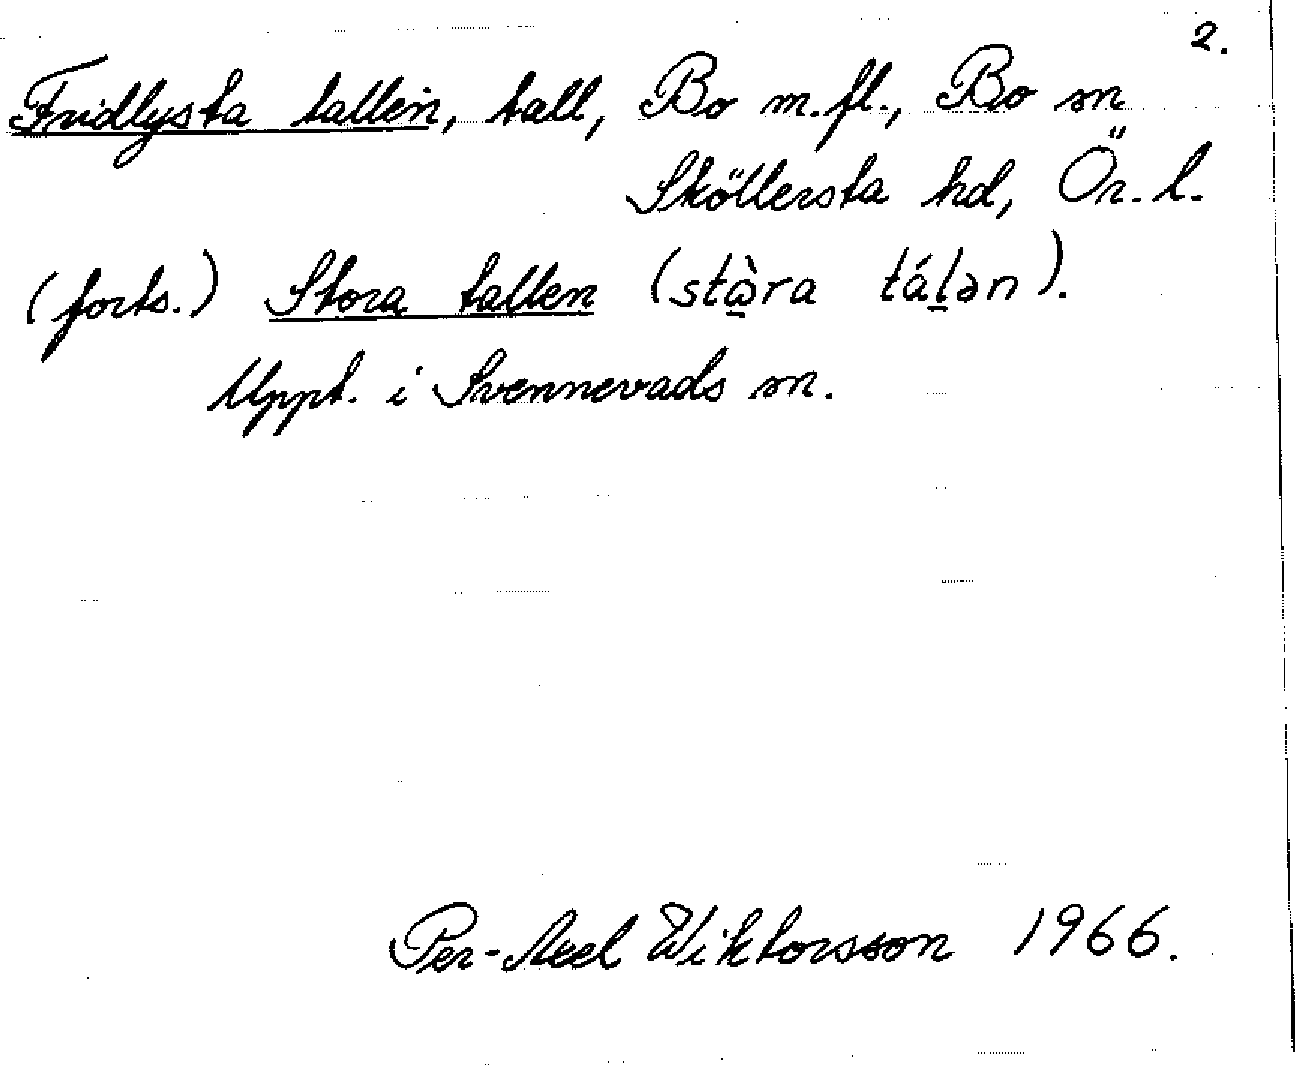 2.
Fridlysta tallen, tall, Bo m.fl., Bo sn
Sköllersta hd, Ör. l.
(forts.) Stora tallen (stæ̀ra tálən).
Uppt. i Svennevads sn.
Per-Axel Wiktorsson 1966.